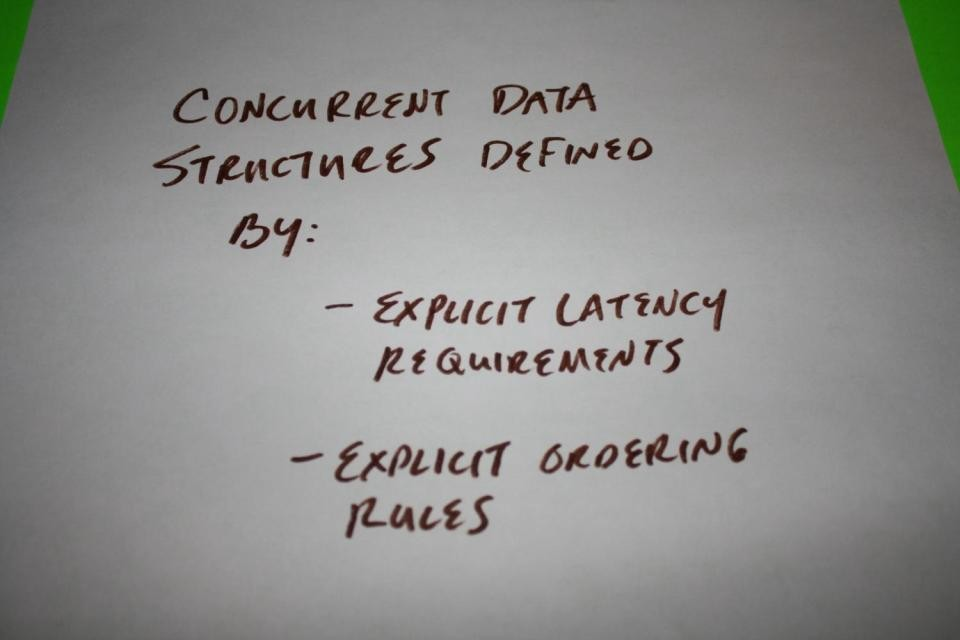 CONCURRENT DATA
STRUCTURES DEFINED
BY:
- EXPLICIT LATENCY
REQUIREMENTS
- EXPLICIT ORDERING
RULES